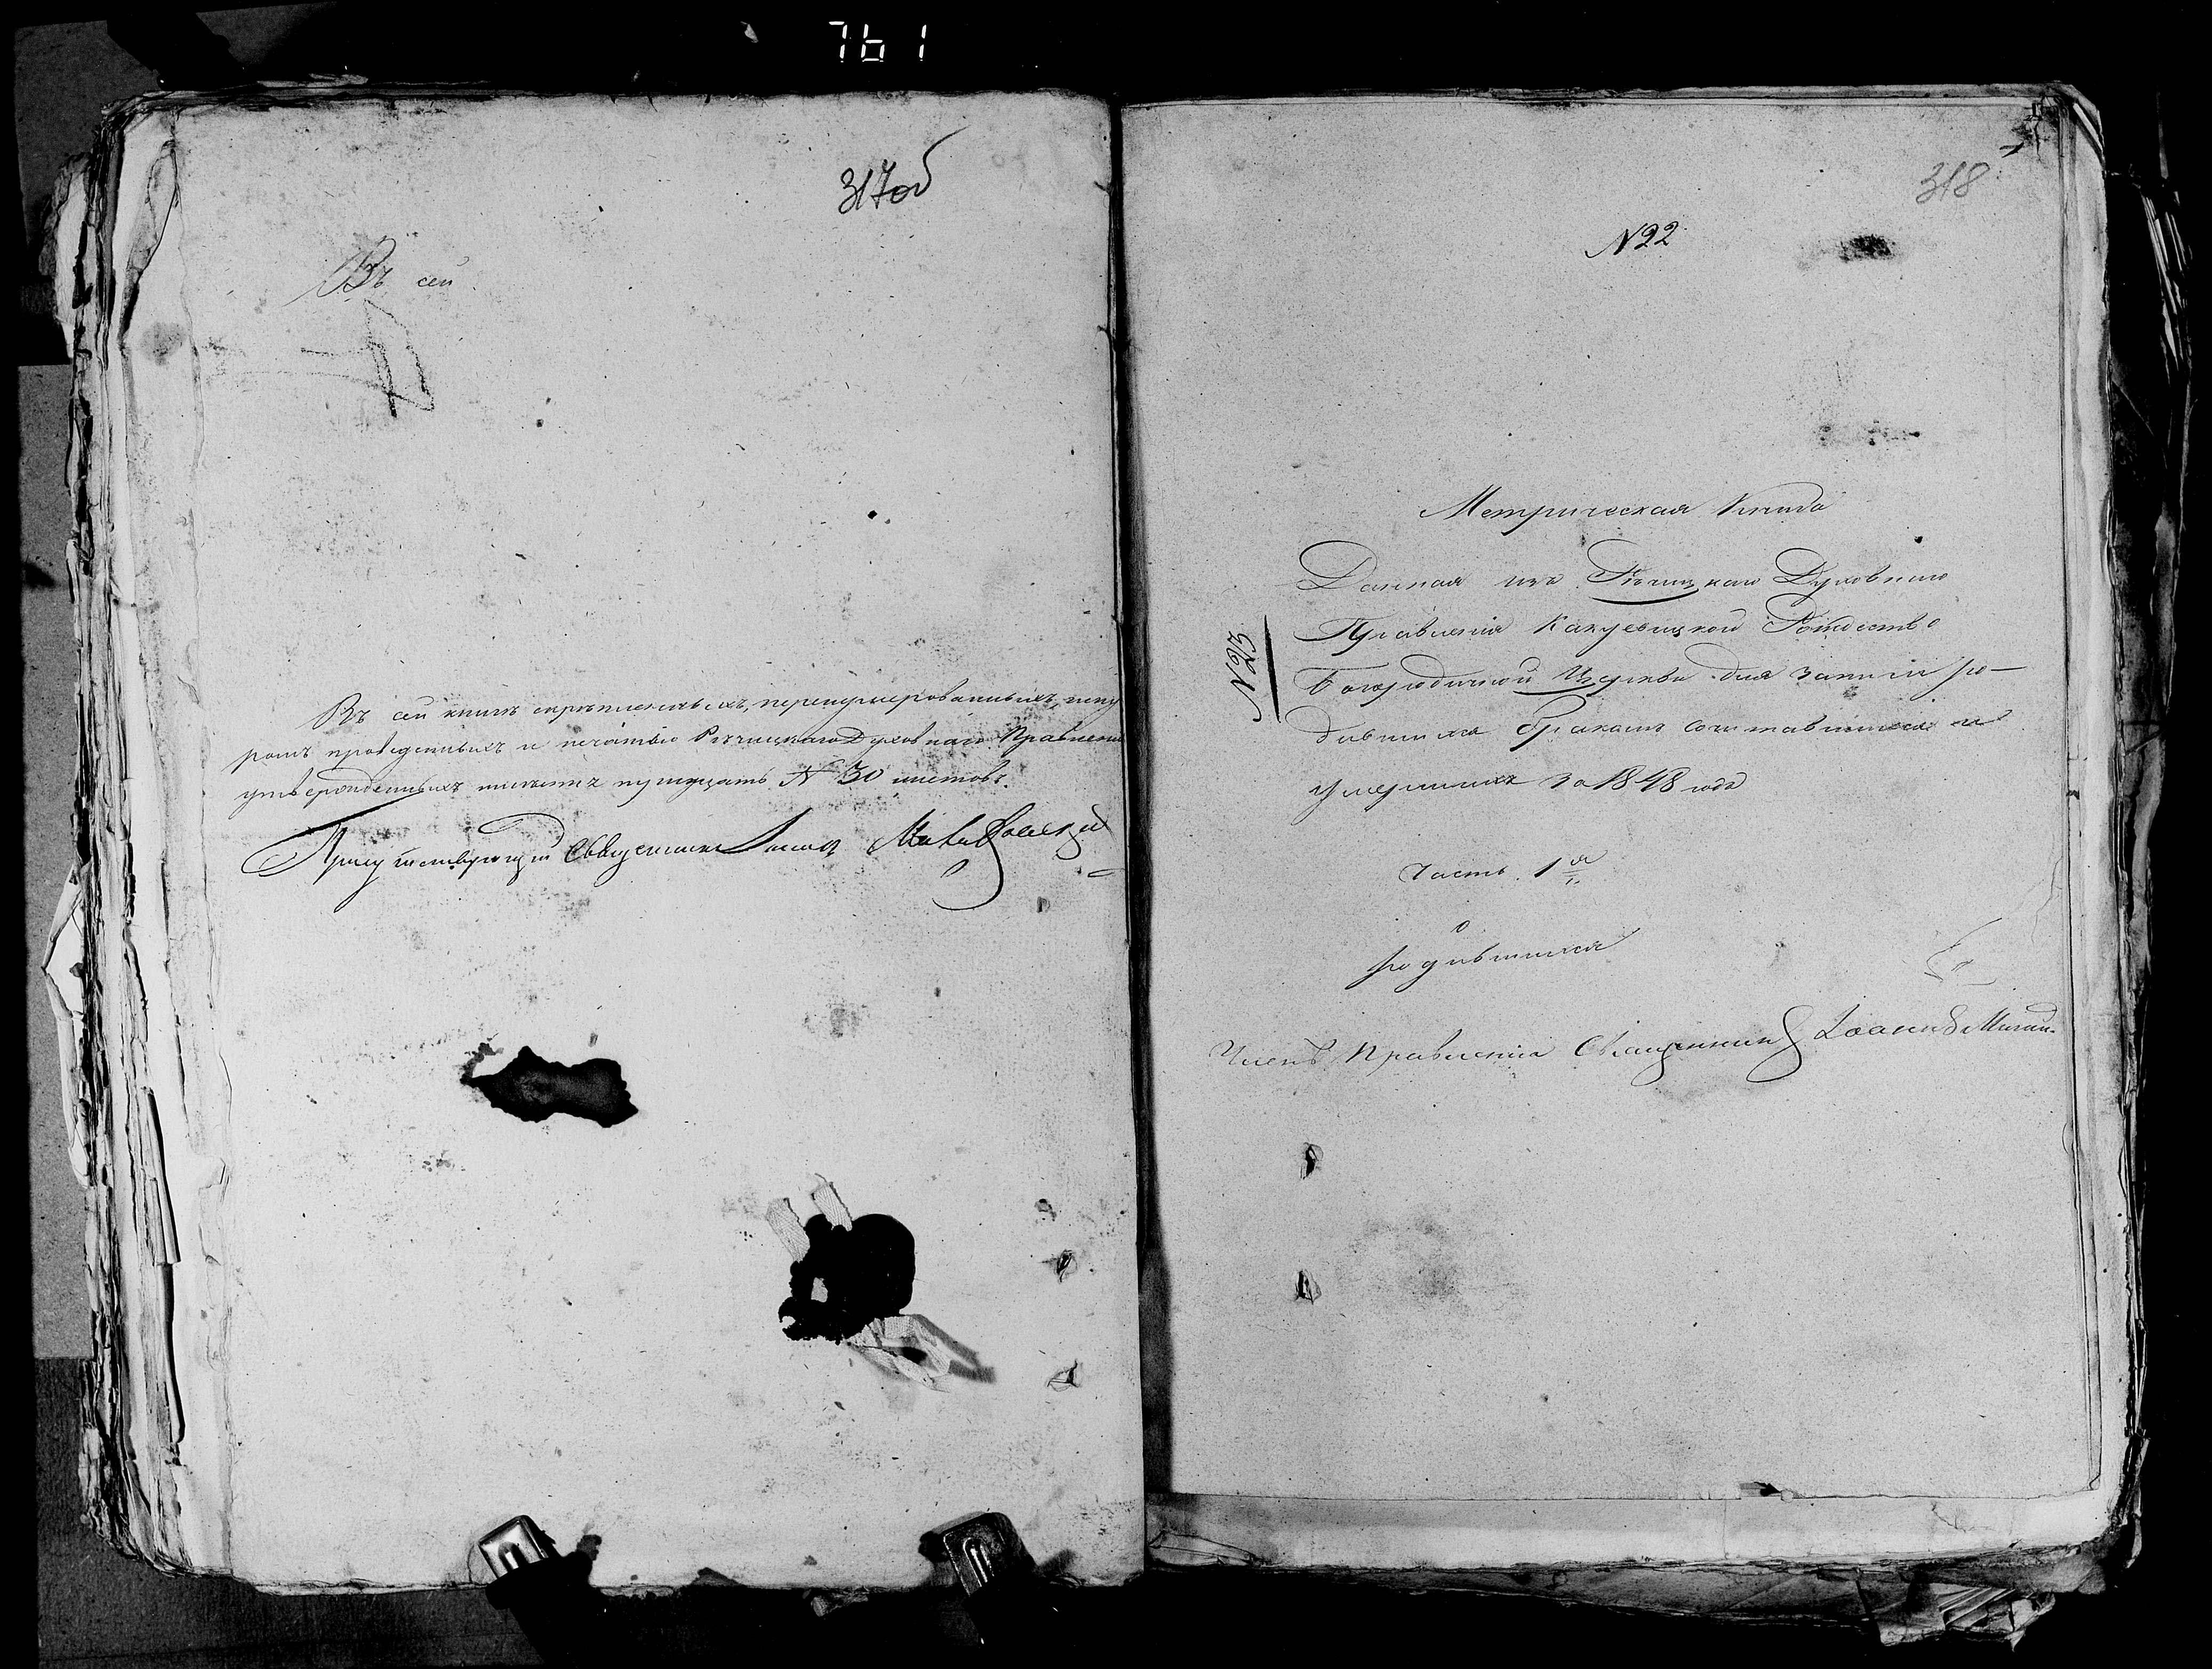 761
317об
Въ сей
Въ сей книгѣ скрѣпленныхъ, перенумерованныхъ, шну
ромъ проведенныхъ и печатью Рѣчицкаго Духовнаго Правленія
утвержденныхъ листовъ тридцать № 30 листовъ.
Присутствующій Священникъ
318
N22
Метрическая Книга
Данная изъ Рѣчицкаго Духовнаго
Правленія Какуевицкой Рождество
Богородичной Церкви для записи ро-
дившихся Бракомъ сочетавшихся и
умершихъ за 1848 года
N375
Часть 1я
о
родившихся
Членъ Правленія Священникъ Іоаннъ